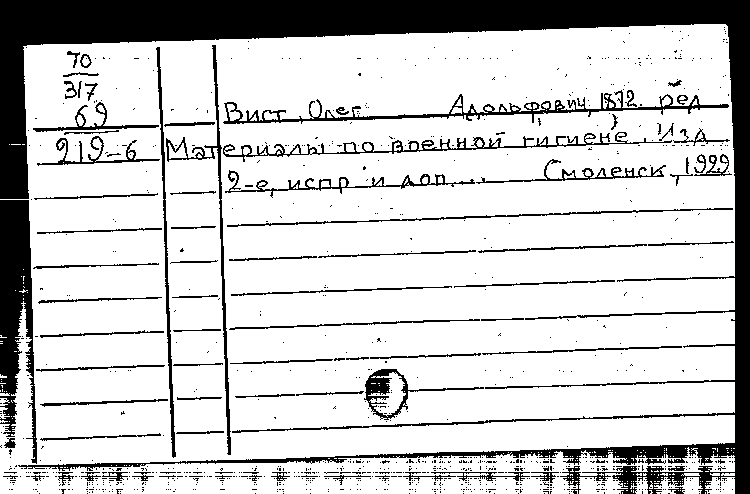 70
317
69
219-6
Вист, Олег Адольфович, 1872. ред
Материалы по военной гигиене. Изд
2-е, испр и доп... Смоленск, 1929